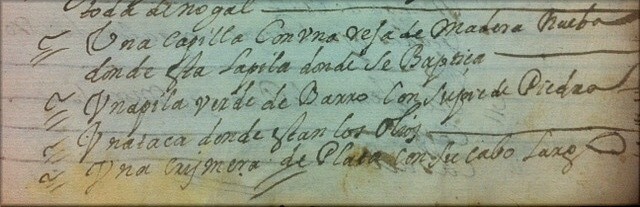 toda de nogal
Una Capilla Con Una reja de Madera Nueba
donde esta la pila donde Se Baptiça
Una pila verde de Barro Con Su pie de Piedra
Una taca donde estan los Olios
Una Crismera de Plata Con Su Cabo Largo